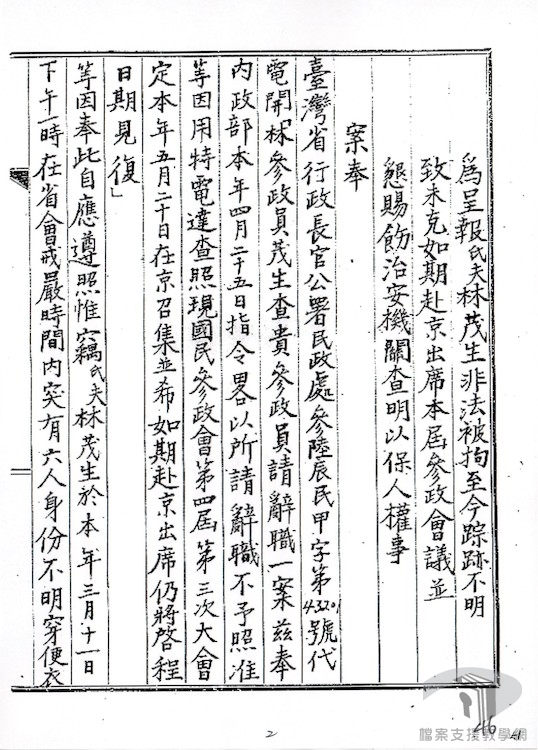 為呈報氏夫林茂生非法被拘至今踪跡不明
致未克如期赴京出席本屆參政會議並
懇賜飭治安機關查明以保人權事
案奉
臺灣省行政長官公署民政處參陸辰民甲字第43201號代
電開林參政員茂生查貴參政員請辭職一案茲奉
內政部本年四月二十五日指令畧以所請辭職不予照准
等因用特電達查照現國民參政會第四屆第三次大會
定本年五月二十日在京召集並希如期赴京出席仍將啓程
日期見復」
等因奉此自應遵照惟竊氏夫林茂生於本年三月十一日
下午一時在省會戒嚴時間內突有六人身份不明穿便衣
2
46
檔案支援教學網